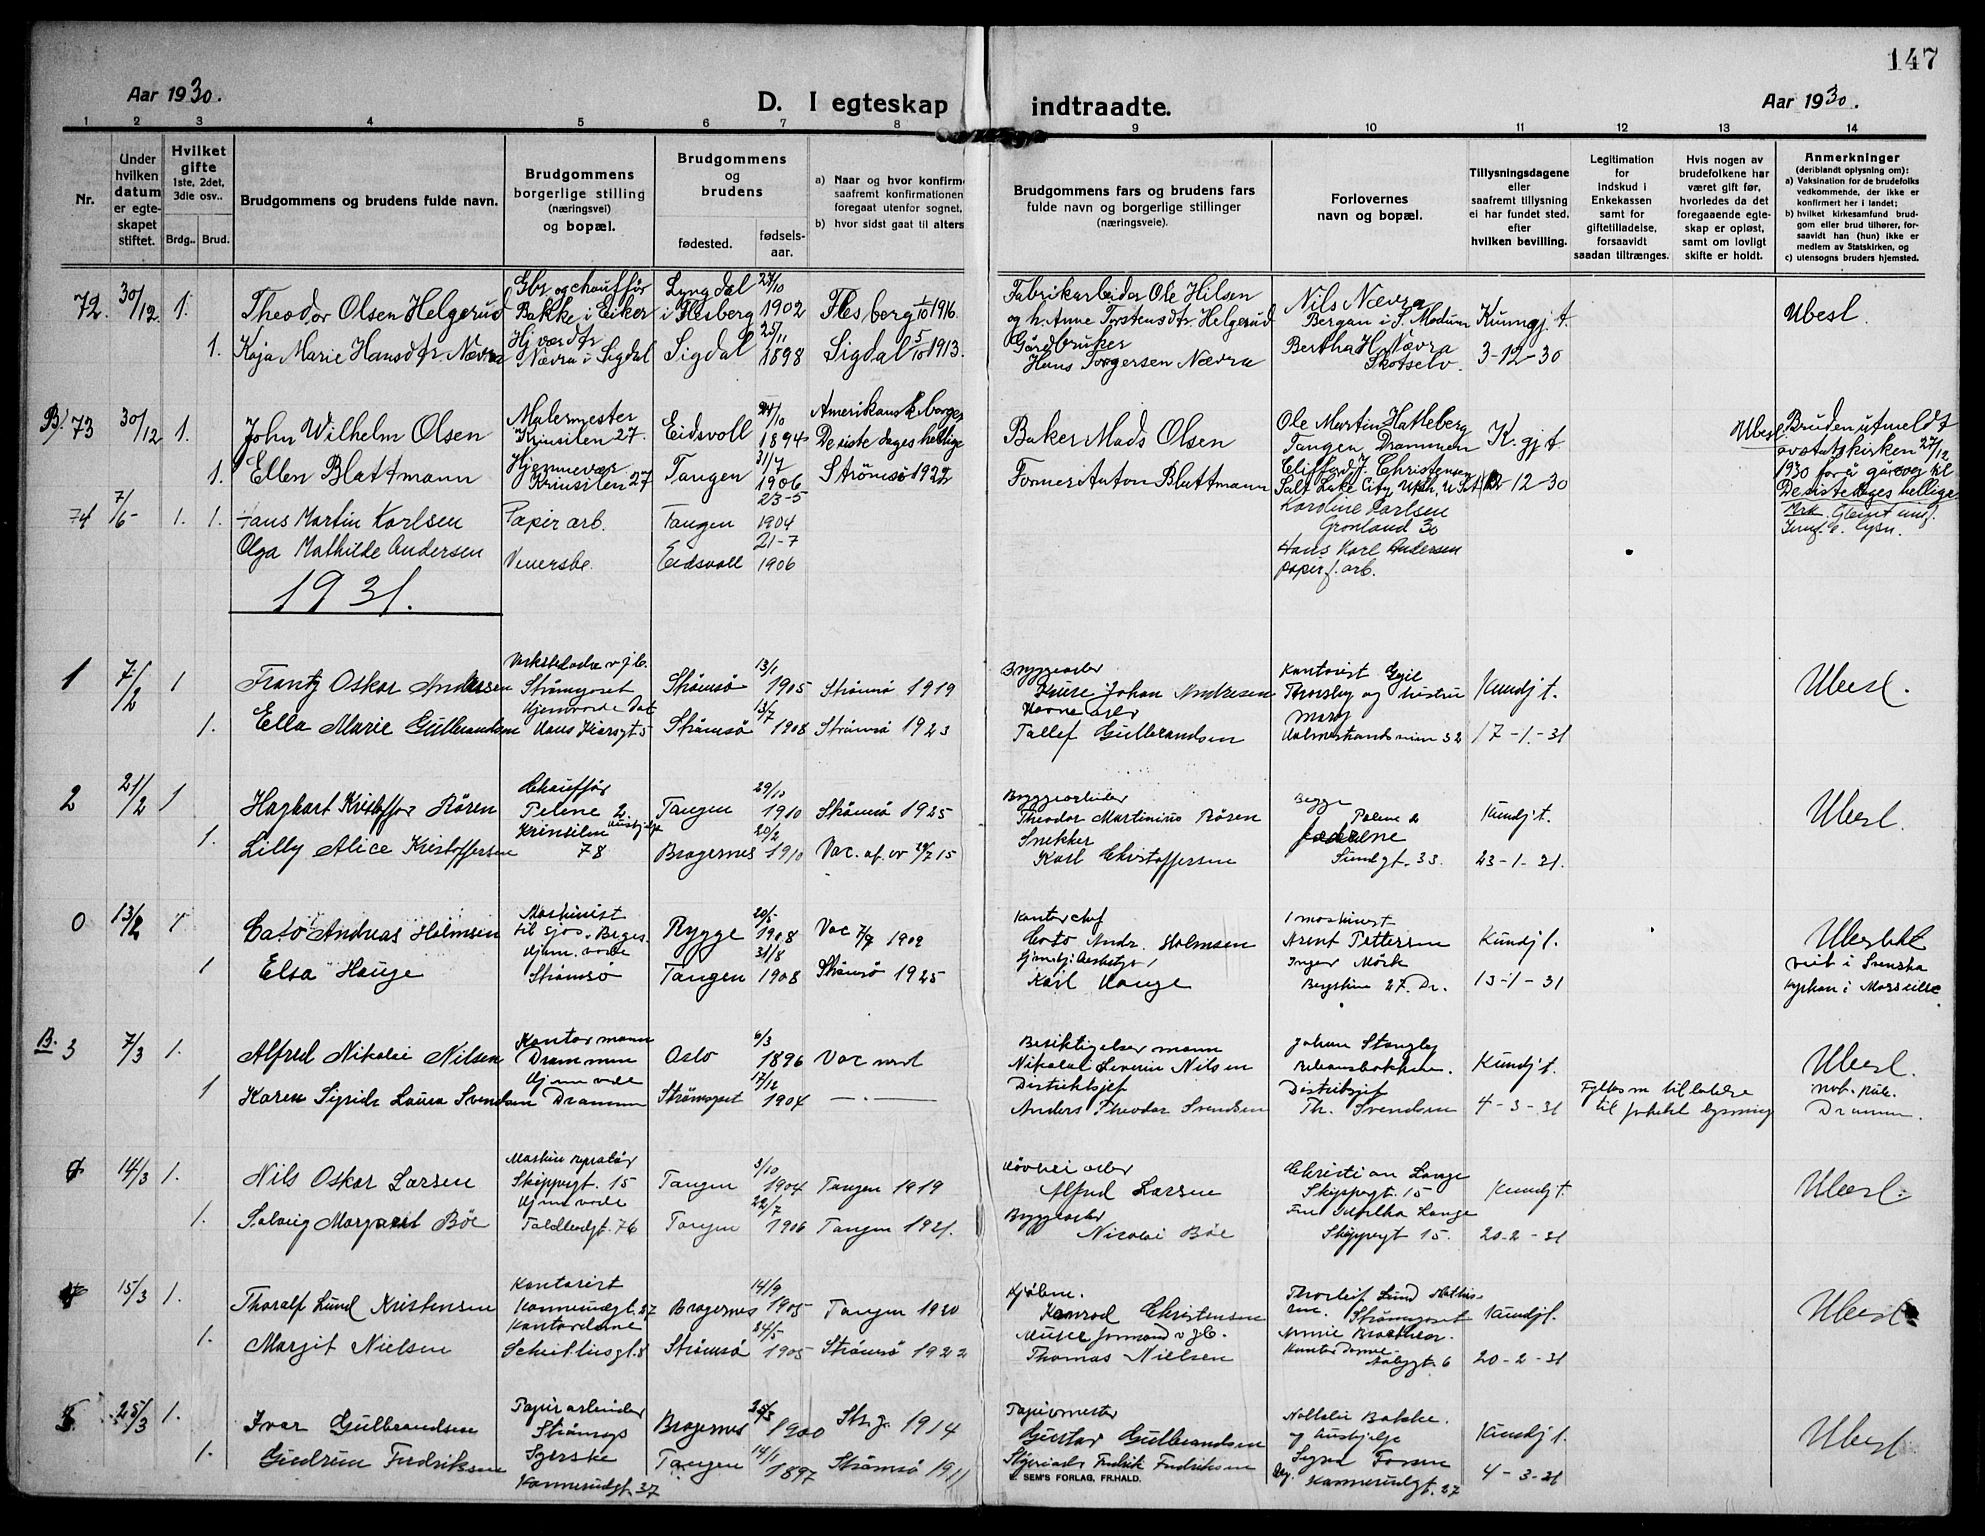 147
Aar 1930.
D. I egteskap indtraadte.
Aar 1930.
1 2 3 4 5 6 7 8 9 10 11 12 13 14
Nr.
Under hvilken datum er egteskapet stiftet.
Hvilket gifte 1ste, 2det, 3die osv..
Brdg.. Brud.
Brudgommens og brudens fulde navn.
Brudgommens borgerlige stilling (næringsvei) og bopæl.
Brudgommens og brudens
fødested. fødsels-aar.
a) Naar og hvor konfirme
saafremt konfirmationen
foregaat utenfor sognet,
b) hvor sidst gaat til alters
Brudgommens fars og brudens fars
fulde navn og borgerlige stillinger
(næringsveie).
Forlovernes
navn og bopæl.
Tillysningsdagene
eller
saafremt tillysning
ei har fundet sted,
efter
hvilken bevilling.
Legitimation
for
indskud i
Enkekassen
samt for
giftetilladelse,
forsaavidt
saadan tiltrænges.
Hvis nogen av
brudefolkene har
været gift før,
hvorledes da det
foregaaende egte-
skap er opløst,
samt om lovligt
skifte er holdt.
Anmerkninger
(deriblandt oplysning om):
a) Vaksination for de brudefolks
vedkommende, der ikke er
konfirmert her i landet;
b) hvilket kirkesamfund brud-
gom eller brud tilhører, for-
saavidt han (hun) ikke er
medlem av Statskirken, og
c) utensogns bruders hjemsted.
72. 30/12. 1. Theodor Olsen Helgerud
Gbr og chauffør
Bakke i Eiker
Lyngdal
i Flesberg
27/10
1902
Flesberg 1/10 1916.
Fabrikarbeider Ole Hilsen
og h. Anne Torstensdtr Helgerud
Nils Nævra
Bergan i S. Modum
Kunngj. t.
Ubesl.
1. Kaja Marie Hansdtr Nævra
Hj. værdtr
Nævra i Sigdal
Sigdal
25/11
1898
Sigdal 5/10 1913.
Gårdbruker
Hans Torgersen Nævra
Bertha H. Nævra
Skotselv.
3-12-30
B. 73 30/12 1. John Wilhelm Olsen
Malermester
Krinsilen 27.
Eidsvoll
24/10
1894
Amerikansk borger
De siste dages hellige
Baker Mads Olsen
Ole Martin Hatleberg
Tangen Drammen
K. gj. t.
Ubesl.
Bruden utmeldt
av statskirken 27/12
1930 for å gå over til
De siste dages hellige
1. Ellen Blattmann
Hjemmevær.
Krinsilen 27
Tangen
31/7
1906
Strømsø 1922
Former Anton Blattmann
Clifford J. Christensen
Salt Lake City Utah, U.S.A.
12-30
74 7/6- 1. 1. Hans Martin Karlsen
Papirarb.
Tangen
23-5
1904
Karoline Karlsen
Grønland 30
Mrk.
Olga Mathilde Andersen
Eidsvoll
21-7
1906
Hans Karl Andersen
papirf. arb.
1931.
1 7/2 1 Frantz Oskar Andersen
Strømsgodset
Strømsø
13/1
1905
Strømsø 1919
Bryggearb
Johan Andresen
Kontorist Egil
Thorsby og hustru
Kundj t.
Ubesl.
1. Ella Marie Gulbrandsen
Hans Kiærsgt 5
Strømsø
13/7
1908
Strømsø 1923
Tallef Gulbrandsen
Mary
Holmestrandsveien 32
17-1.-31
2 21/2 1 Hagbart Kristoffer Røren
Chauffør
Pelene 2.
Tangen
29/10
1910
Strømsø 1925
Byggearbeider
Theodor Martinius Røren
Begge
Pelene 2
Kundj t.
Ubesl.
1. Lilly Alice Kristoffersen
Krinsilen
78
Bragernes
20/2
1910
Vac. af.
Snekker
Karl Christoffersen
fædrene
Sundgt. 33.
23-1-31.
0 13/2 Cato Andreas Holmsen
Maskinist
til sjøs. Berges.
Rygge
20/5
1908
Vac 7/9 1909
Kontorchef
Cato Andr. Holmsen
1 maskinist
Arent Pettersen
Kundj t.
Ubeslekt
viet i Svenska
kyrkan i Marseille
1 Elsa Hauge
Hjem. vær
Strømsø
Tangen
31/8
1908
Strømsø 1925
Karl Hauge
Inger Mörk
Bergstien 27. Dr.
13-1-31
B. 3 7/3 1. Alfred Nikolai Nilsen
Kontormann
Drammen
Oslo
6/3
1896
Vac
Besiktigelsesmann
Nikolai Severin Nilsen
Johan Stangeby
Kundj t.
Ubesl.
1 Karen Sigrid Laura Svendsen
Drammen
Strømsgodset
17/12
1904
— . —
Distriktsjef
Anders Theodor Svendsen
Distriktsjef
Th. Svendsen
4-3-31
Fylkesm tillatelse
til forkort lysning
Drammen.
14/3 1. Nils Oskar Larsen
Maskinreparatør
Skippergt. 15
Tangen
3/10
1904
Tangen 1919
Høvleriarb
Alfred Larsen
Christian Lange
Skippergt. 15
Kundj t
Ubesl.
1. Solveig Margaret Bøe
Tordenskgt. 76
Tangen
22/7
1906
Tangen 1921.
Byggearb
Nicolai Bøe
Fru Lange
Skippergt 15.
20-2-31
15/3 1. Thoralf Lund Kristensen
Kontorist
Konnerudgt. 27
Bragernes
14/9
1905
Tangen 1920
Kjøbm.
Konrad Christensen
Thorleif Lund Mathisen.
Strømsgodset
Kundj t.
Ubesl.
1. Margit Nielsen
Kontordame
Schultzsgt 8
Strømsø
24/5
1905
Strømsø 1922
Thomas Nielsen
Kontordame.
6
20-2-31
5. 25/3 1. Ivar Gulbrandsen
Papirarbeider
Bragernes
1900
Strg. 1914
Papirmester
Gustav Gulbrandsen
Bakke.
og
Kundj t.
Ubesl.
1. Gudrun Fredriksen
Konnerudgt. 37
Tangen
14/1
1897
Strømsø 1911
Fredrik Fredriksen
Konnerudgt. 27
4-3-31
E. SEM'S FORLAG, FR.HALD.